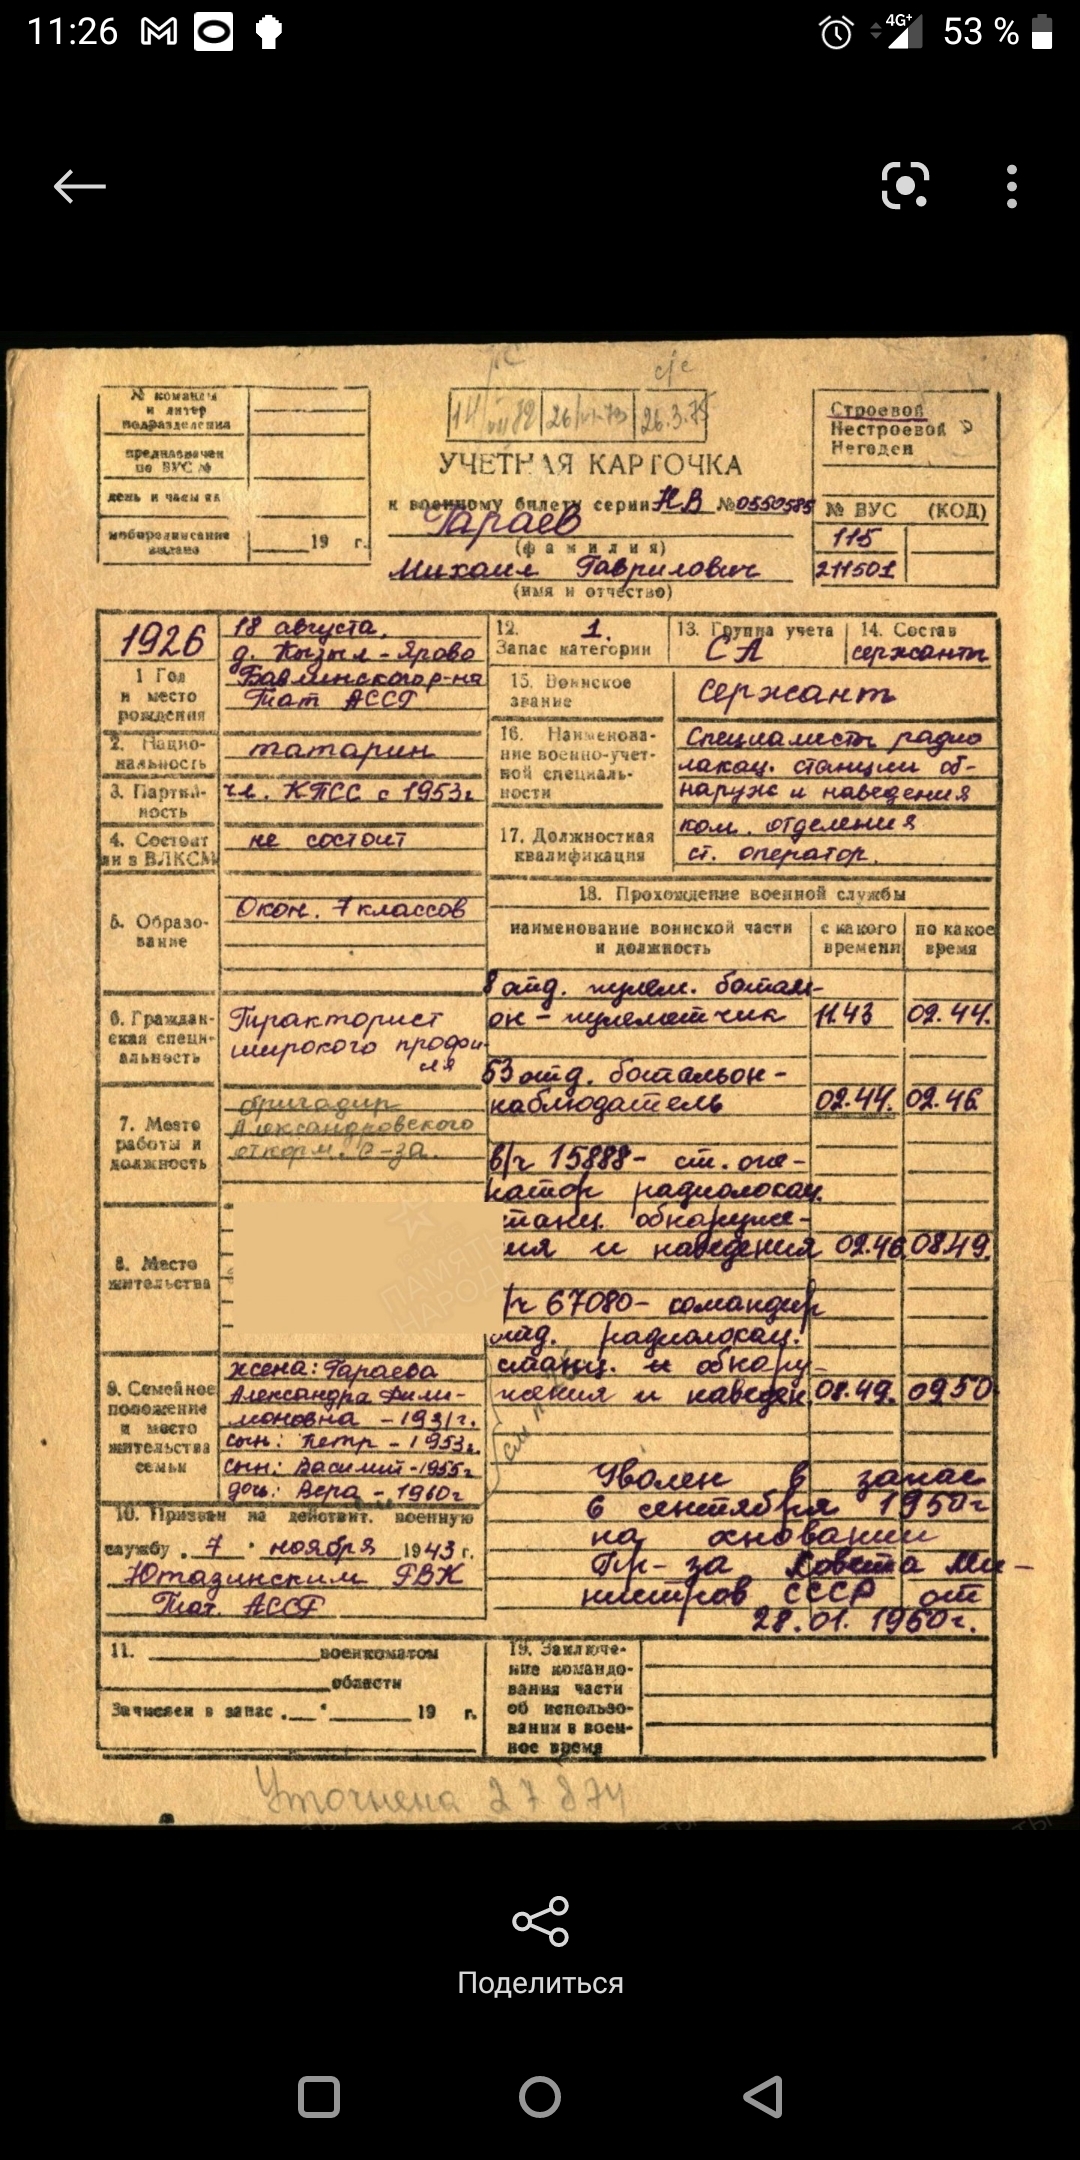 11:26
4G+
53 %
№ команды
и литер
подразделения
предназначен
по ВУС №
день и часы яв
мобпредписание
выдано
19 г.
с/с
26.3.75
УЧЕТНАЯ КАРТОЧКА
к военному билету серии НВ № 0550585
Гараев
(фамилия)
Михаил Гаврилович
(имя и отчество)
Строевой
Нестроевой
Негоден
№ ВУС (КОД)
115
211501
1926
1 Год
и место
рождения
18 августа,
д. Кызыл-Ярово
Бавлинского р-на
Тат АССР
2. Нацио-
нальность
татарин
3. Партий-
ность
чл. КПСС с 1953г
4. Состоит
ли в ВЛКСМ
не состоит
5. Образо-
вание
Окон. 7 классов
6. Граждан-
ская специ-
альность
Тракторист
широкого профи-
ля
7. Место
работы и
должность
бригадир
Александровского
откорм. с-за.
8. Место
жительства
9. Семейное
положение
и место
жительства
семьи
жена: Гараева
Александра Фили-
моновна - 1931г.
сын: Петр - 1953г.
сын: Василий - 1955г
дочь: Вера - 1960г
10. Призван на действит. военную
службу 7 ноября 1943 г.
Ютазинским РВК
Тат. АССР
11. военкоматом
области
Зачислен в запас 19 г.
12. 1.
Запас категории
13. Группа учета
СА
14. Состав
сержанты
15. Воинское
звание
сержант
16. Наименова-
ние военно-учет-
ной специаль-
ности
Специалисты радио
локац. станции об-
наруж и наведения
17. Должностная
квалификация
ком. отделения
ст. оператор.
18. Прохождение военной службы
наименование воинской части
и должность
с какого
времени
по какое
время
8 отд. пулем. баталь-
он - пулеметчик 11.43 02.44.
53 отд. батальон -
наблюдатель 02.44. 02.46
в/ч 15888 - ст. опе-
ратор радиолокац.
станц. обнаруже-
ния и наведения 02.46 08.49.
/ч 67080 - командир
отд. радиолокац.
станц. и обнару-
жения и наведен. 08.49. 09.50
Уволен в запас
6 сентября 1950г
на основании
Пр-за Совета Ми-
нистров СССР от
28.01.1950г.
19. Заключе-
ние командо-
вания части
об использо-
вании в воен-
ное время
Уточнена 27 8 74
Поделиться